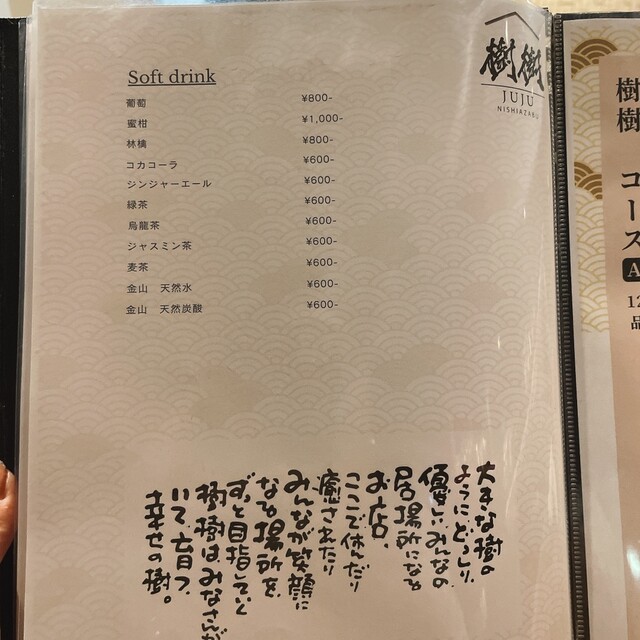 Soft drink
葡萄 ¥800-
蜜柑 ¥1,000-
林檎 ¥800-
コカコーラ ¥600-
ジンジャーエール ¥600-
緑茶 ¥600-
烏龍茶 ¥600-
ジャスミン茶 ¥600-
麦茶 ¥600-
金山 天然水 ¥600-
金山 天然炭酸 ¥600-
樹樹
JUJU
NISHIAZABU
大きな樹の
ようにどっしり、
優しいみんなの
居場所になる
お店、
ここで休んだり
癒されたり
みんなが笑顔に
なる場所を
ずっと目指していく
樹樹は、みなさんが
いて、育つ、
幸せの樹。
樹樹 コース
A
12
品